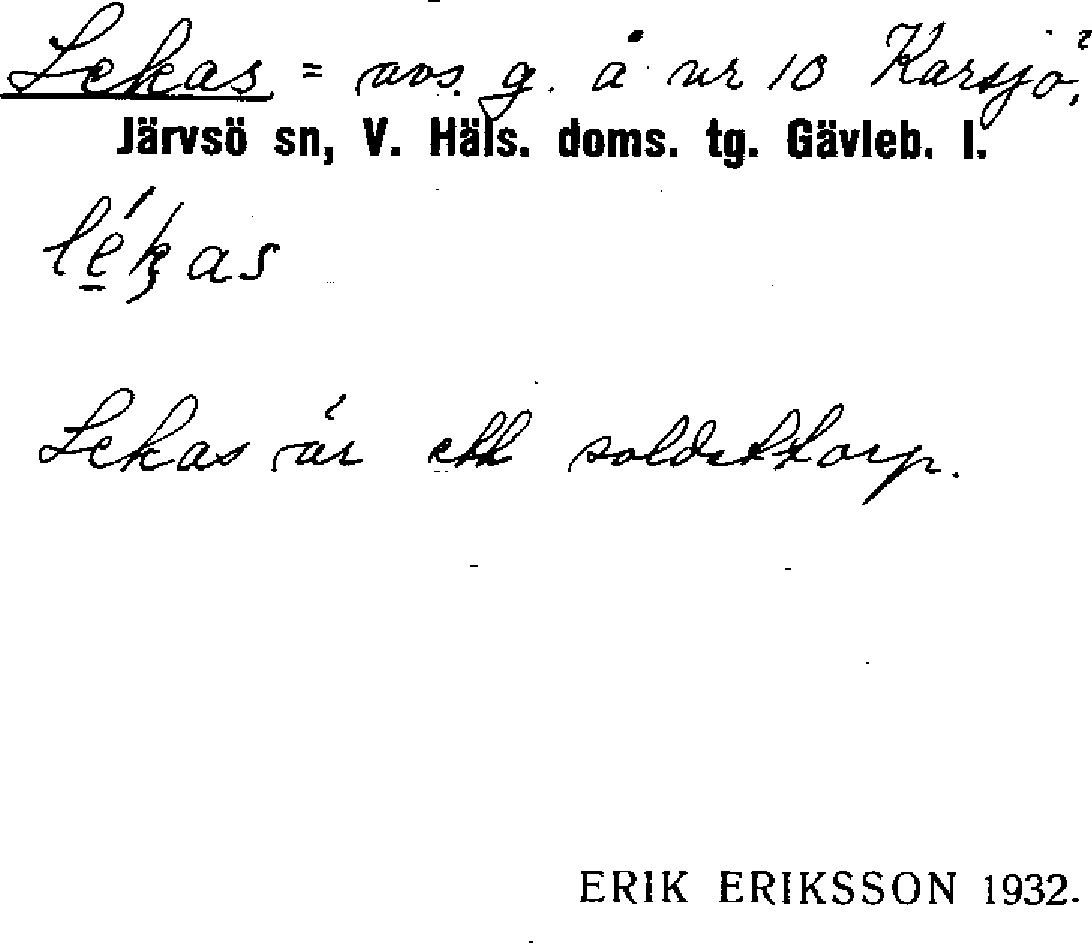 Lekas = avs. g. å nr 10 Karsjö,
Järvsö sn, V. Häls. doms. tg. Gävleb. l.
lé̱kas
Lekas är ett soldattorp.
ERIK ERIKSSON 1932.